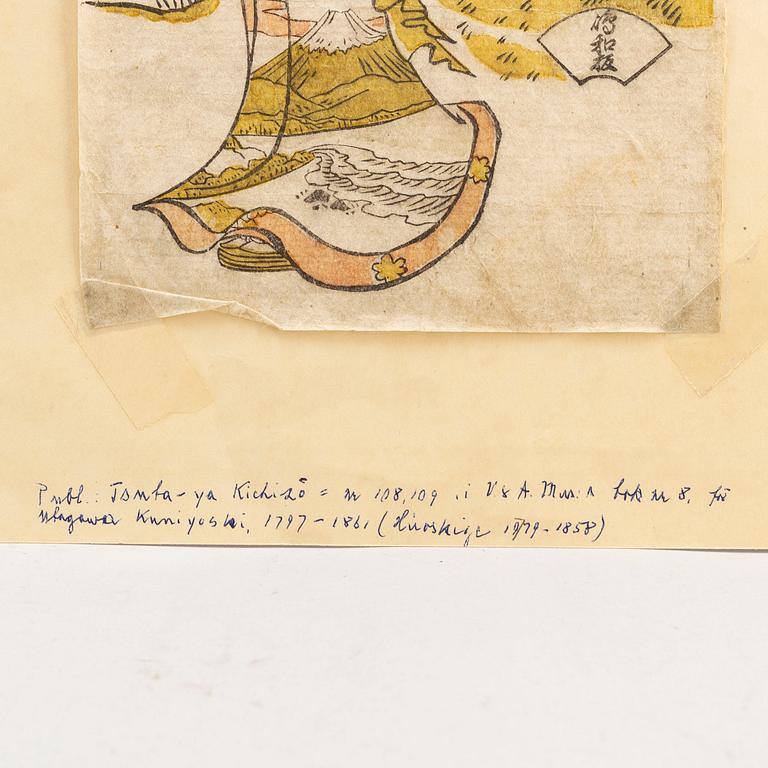 鳴和板
Publ.: Tsuta-ya Kichizō = nr 108,109 i V & A. Mus:s bok nr 8, för
Utagawa Kuniyoshi, 1797-1861 (Hiroshige 1858)